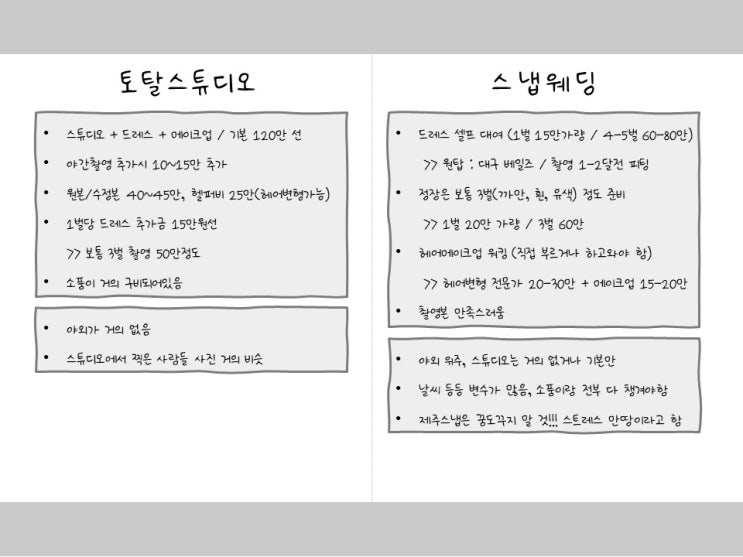 토탈스튜디오
• 스튜디오 + 드레스 + 메이크업 / 기본 120만 선
• 야간촬영 추가시 10~15만 추가
• 원본/수정본 40~45만, 헬퍼비 25만(헤어변형가능)
• 1벌당 드레스 추가금 15만원선
>> 보통 3벌 촬영 50만정도
• 소품이 거의 구비되어있음
• 야외가 거의 없음
• 스튜디오에서 찍은 사람들 사진 거의 비슷
스냅웨딩
• 드레스 셀프 대여 (1벌 15만가량 / 4-5벌 60-80만)
>> 원탑 : 대구 베일즈 / 촬영 1-2달전 피팅
• 정장은 보통 3벌(까만, 흰, 유색) 정도 준비
>> 1벌 20만 가량 / 3벌 60만
• 헤어메이크업 워킹 (직접 부르거나 하고와야 함)
>> 헤어변형 전문가 20-30만 + 메이크업 15-20만
• 촬영본 만족스러움
• 야외 위주, 스튜디오는 거의 없거나 기본만
• 날씨 등등 변수가 많음, 소품이랑 전부 다 챙겨야함
• 제주스냅은 꿈도꾸지 말 것!!! 스트레스 만땅이라고 함